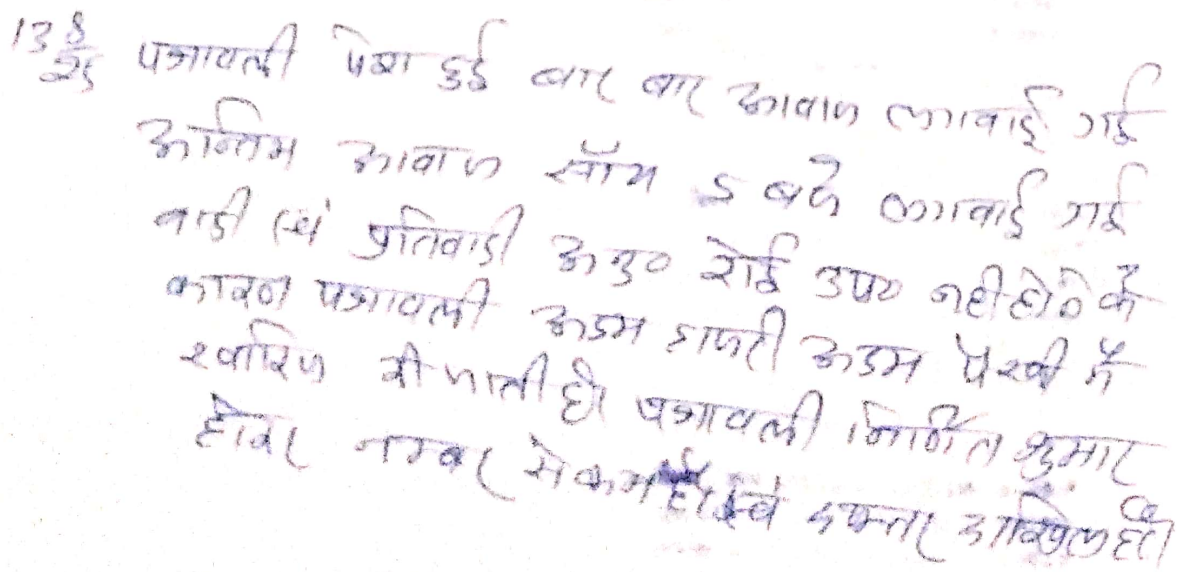 13/8/25 पत्रावली पेश हुई बार बार आवाज लगवाई गई
अन्तिम आवाज सॉय 5 बजे लगवाई गई
वादी एवं प्रतिवादी अनु० कोई उप० नहीं होने के
कारण पत्रावली अदम हाजरी अदम पैरवी में
खारिज की जाती है। पत्रावली निर्णित शुमार
होकर नम्बर से कम हो एवं दफ्तर दाखिल हो।